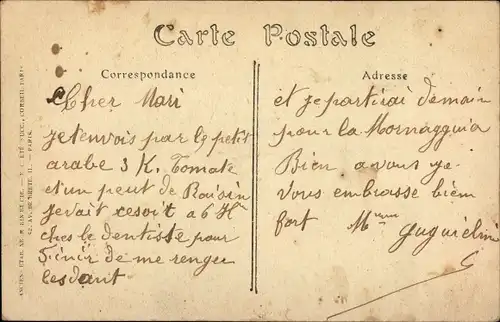 Carte Postale
Correspondance
Cher Mari
je tenvois par le petit
arabe 3 K. Tomate
et un peut de Raisin
jevait cesoit a 6 H
ches le dentiste pour
finir de me renger
lesdant
Adresse
et je partirai demain
pour la Mornagguia
Bien a vous je
vous embrasse bien
fort